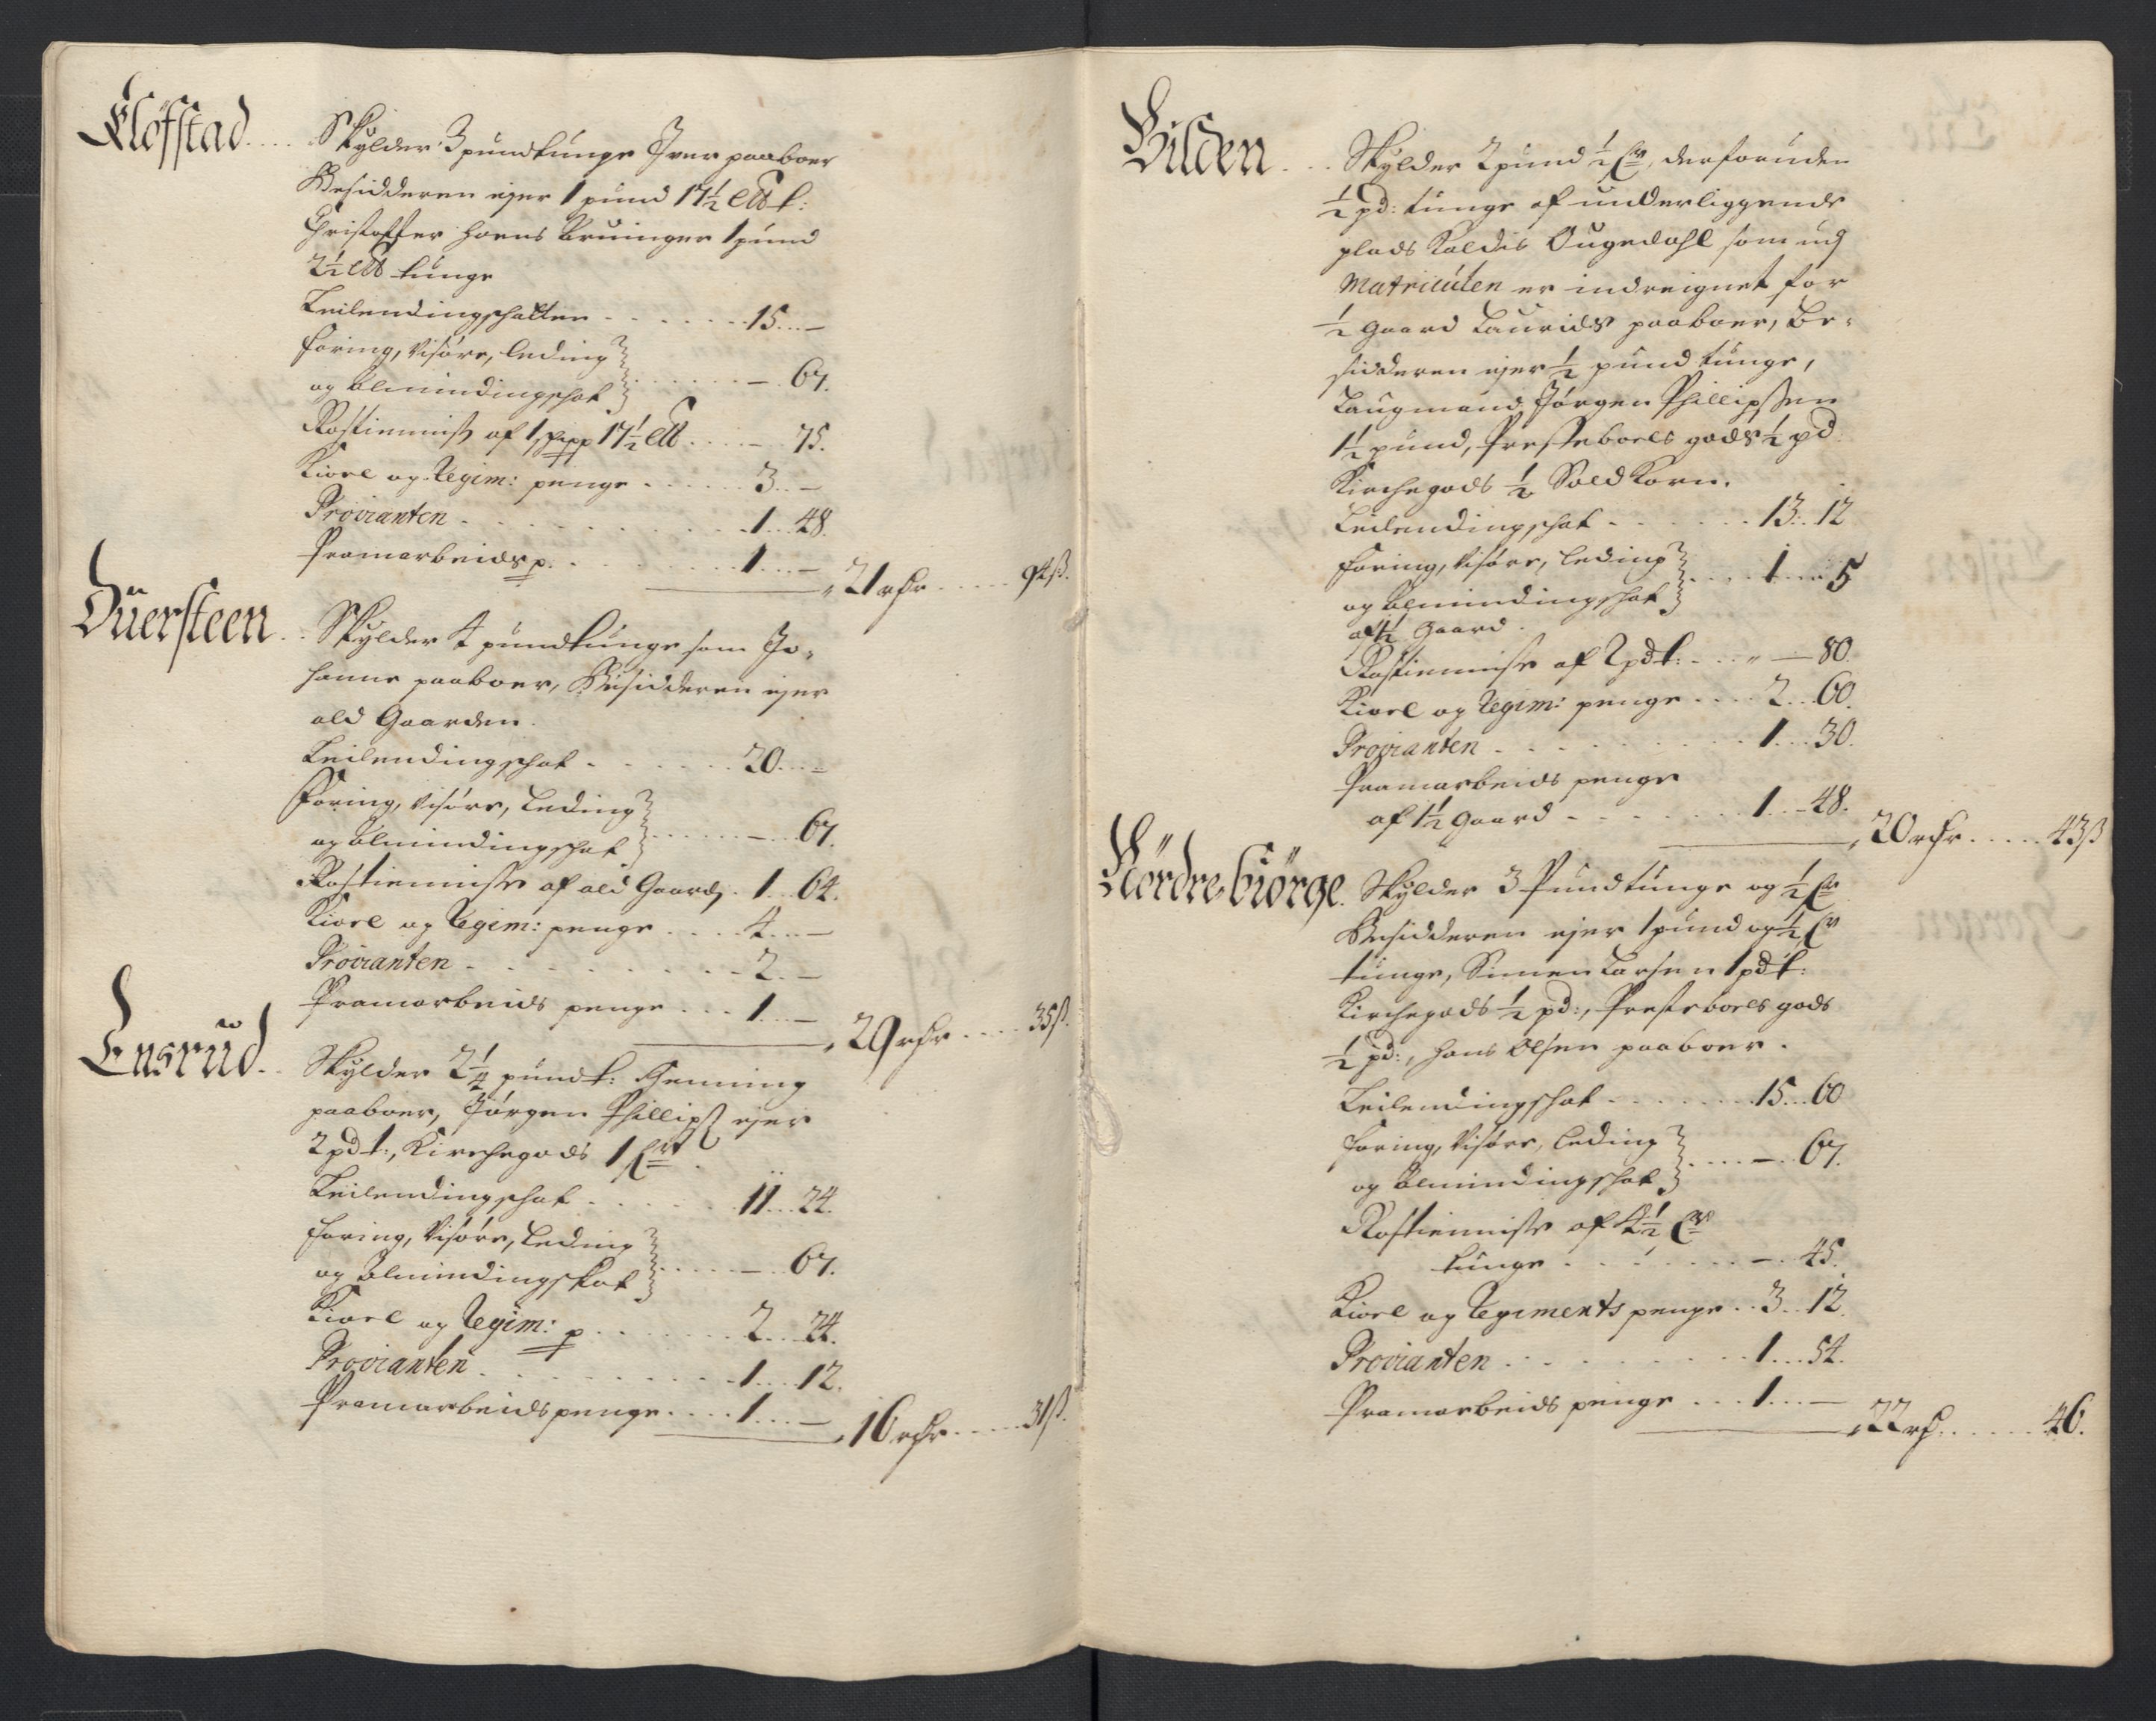 Kløfstad .... Skylder 3 pundtunge Iver paaboer
Besidderen ejer 1 pund 17½ l℔ t:
Christoffer Hoens Arvinger 1 pund
2½ l℔ tunge
Leilendingschatten - - - - - - 15 ... —
Foring, Visøre, Leding
og Almindingschat } ...... — .. 67.
Rostienniste af 1 schpp 17½ l℔ .... — .. 75.
Kiørl og Regim: penge ...... 3 .. —
Provianten - - - - - - 1 ... 48.
Pramarbeids p. ........ 1 .... — 21 rdr ..... 94 ß.
Duersteen .. Skylder 4 pundtunge som Jo-
hanne paaboer, Besidderen ejer
ald Gaarden.
Leilendingschat - - - - - 20 ... —
Foring, Visøre, Leding
og Almindingschat } ...... — ... 67.
Rostienniste af ald Gaard, . 1 .. 64.
Kiørl og Regim: penge .... 4 ... —
Provianten - - - - - - 2 . —
Pramarbeids penge ... 1 ... — 29 rdr .... 35 ß.
Ensrud .. Skylder 2¼ pund t: Henning
paaboer, Jørgen Phillips: ejer
2 pd t:, Kirchegods 1 fr
Leilendingschat - - - - - 11 ... 24.
Foring, Visøre, Leding
og Almindingskat } ..... — .. 67.
Kiørl og Regim: p ...... 2 ... 24.
Provianten - - - - - - 1 .... 12.
Pramarbeids penge .... 1 ... — 16 rdr ..... 31 ß.
Vilden ... Skylder 2 pund ½ fr, derforuden
½ pd: tunge af underliggende
plads Kaldis Ougedahl som udj
Matriculen er indreignet for
½ gaard Laurids paaboer, Be-
sidderen ejer ½ pund tunge,
Laugmand Jørgen Phillipsen
1½ pund, Presteboels gods ½ pd
Kirchegods ½ Sold Korn.
Leilendingschat - - - - - 13 .. 12
Foring, Visøre, Leding
og Almindingschat } .... 1 .... 5
af 1½ Gaard.
Rostienniste af 2 pd t: - .. — 80.
Kiørl og Regim: penge .... 2 .. 60.
Provianten - - - - - - 1 .... 30.
Pramarbeids penge
af 1½ Gaard - - - - - 1 ... 48. 20 rdr ..... 43 ß
Nördre biørge. Skylder 3 Pundtunge og ½ fr
Besidderen ejer 1 pund og ½ fr
tunge, Simen Larsen 1 pd t:
Kirchegods ½ pd:, Presteboels gods
½ pd:, Hans Olsen paaboer.
Leilendingschat - - - - - 15 ... 60
Foring, Visøre, Leding
og Almindingschat } .... — .. 67.
Rostienniste af 4½ fr
tunge - - - - - — .. 45.
Kiørl og Regiments penge .. 3 .. 12.
Provianten - - - - - - 1 .... 54.
Pramarbeids penge ... 1 ... — 22 rd ....... 46.